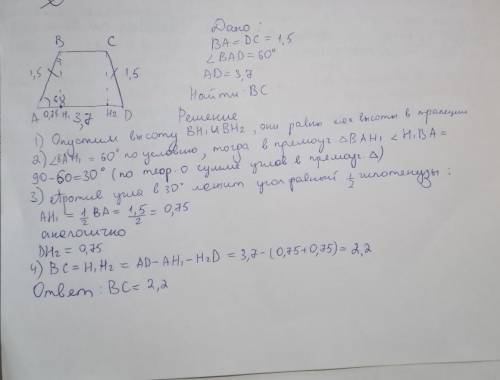 Дано:
BA = DC = 1,5
∠BAD = 60°
AD = 3,7
Найти: BC
B C
1,5 1,5
60
A 0,75 H₁ 3,7 H₂ D
Решение
1) Опустим высоту BH₁ и BH₂, они равны как высоты в трапеции
2) ∠BAH₁ = 60° по условию, тогда в прямоуг △BAH₁ ∠H₁BA =
90-60=30° (по теор. о сумме углов в прямоуг. △)
3) Против угла в 30° лежит угол равный 1/2 гипотенузы:
AH₁ = 1/2 BA = 1,5/2 = 0,75
аналогично
DH₂ = 0,75
4) BC = H₁H₂ = AD - AH₁ - H₂D = 3,7 - (0,75+0,75) = 2,2
Ответ: BC = 2,2